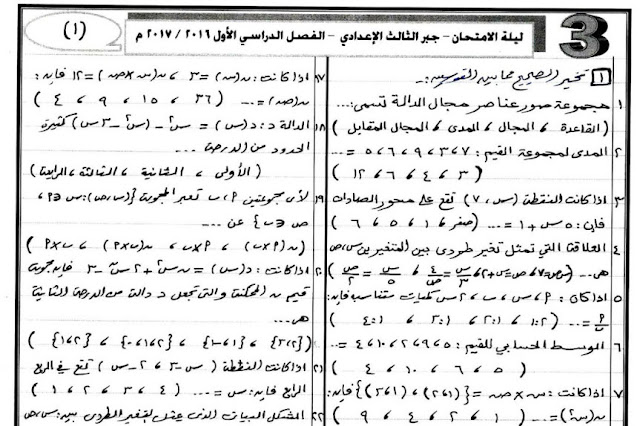 ليلة الامتحان - جبر الثالث الإعدادي - الفصل الدراسي الأول ٢٠١٦ / ٢٠١٧ م
(١)
3
١ تخير الصحيح مما بين القوسين :-
١ مجموعة صور عناصر مجال الدالة تسمى ...
(القاعدة ، المجال ، المدى ، المجال المقابل)
٢ المدى لمجموعة القيم : ٧ ، ٣ ، ٩ ، ٦ ، ٥ = ...
(٣ ، ٤ ، ٦ ، ١٢)
٣ اذا كانت النقطة (س ، ٧) تقع على محور الصادات
فإن : ٥ س + ١ = ... (صفر ، ١ ، ٥ ، ٦)
٤ العلاقة التي تمثل تغير طردى بين المتغيرين س ، ص
هى ...
٥ اذا كان : ٩ ، س ، ب ، ٢ س كميات متناسبة فإن :
= ... (١ : ٢ ، ٢ : ١ ، ٣ : ١ ، ٤ : ١)
٦ الوسط الحسابي للقيم :
(٥ ، ٦ ، ١٠ ، ٤)
٧ اذا كانت : س × ص = {(١ ، ٢) ، (١ ، ٣)} فإن :
ن(س) = ... (١ ، ٢ ، ٤ ، ٩)
١٧ اذا كانت : ن(س) = ٣ ، ن(س × ص) = ١٢ فإن :
ن(ص) = ... (٤ ، ٩ ، ١٥ ، ٣٦)
١٨ الدالة د : د(س) = كثيرة
الحدود من الدرجة ...
(الأولى ، الثانية ، الثالثة ، الرابعة)
١٩ لأى مجموعتين ٩ ، ب تعبر المجموعة
عن ...
٢٠ اذا كانت : د(س) = فإن مجموعة
قيم ن الممكنة والتى تجعل د دالة من الدرجة الثانية
هى ...
٢١ اذا كانت النقطة (س - ٣ ، ٢ - س) تقع فى الربع
الرابع فإن : س = ... (٤ ، ٣ ، ٢ ، ١)
٢٢ الشكل البيانى الذى يمثل التغير الطردى بين : س ، ص